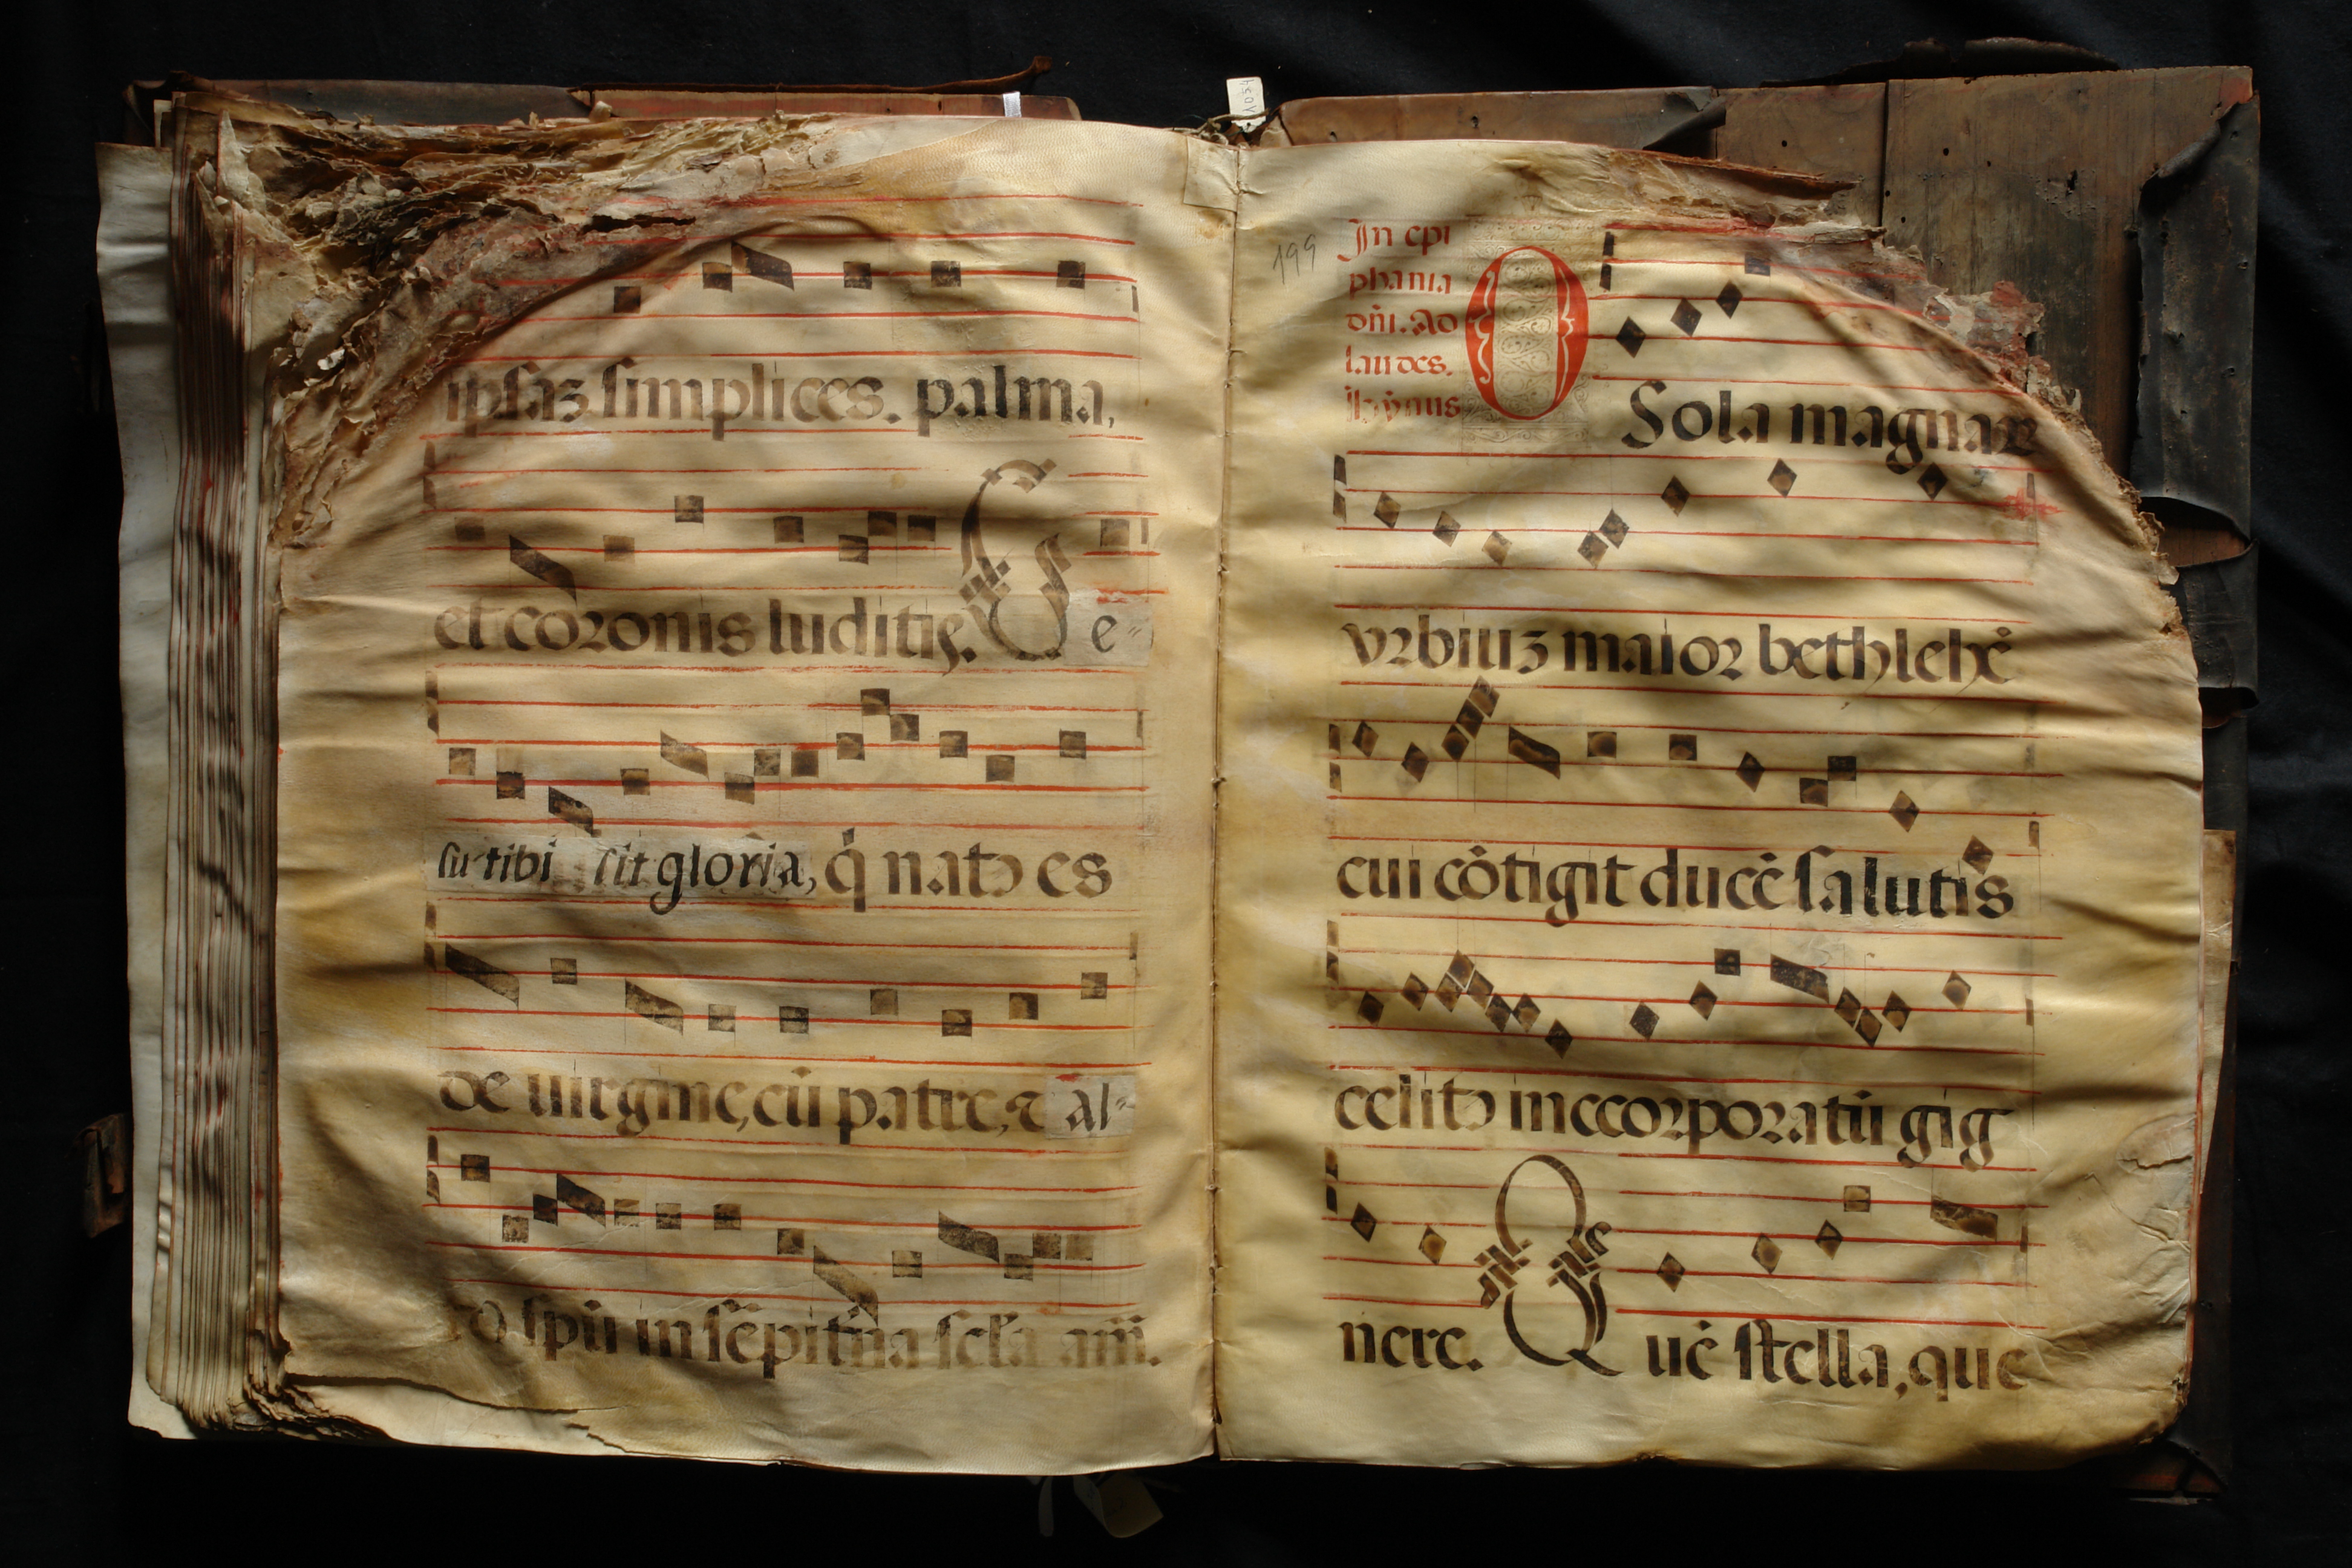 ipsaꝫ simplices. palma,
et coronis luditis. Ge-
su tibi sit gloria, q̇ natꝰ es
de uirgine, cū patre, ⁊ al-
o spū in sēpit̄na scl̄a am̄.
199
In epi
phania
dn̄i. Ad
laudes.
hȳnus
O Sola magnaꝝ
vrbiuꝫ maior bethlehē
cui cōtigit ducē salutis
celitꝰ inccorporatū gig
nere. Quē stella, que